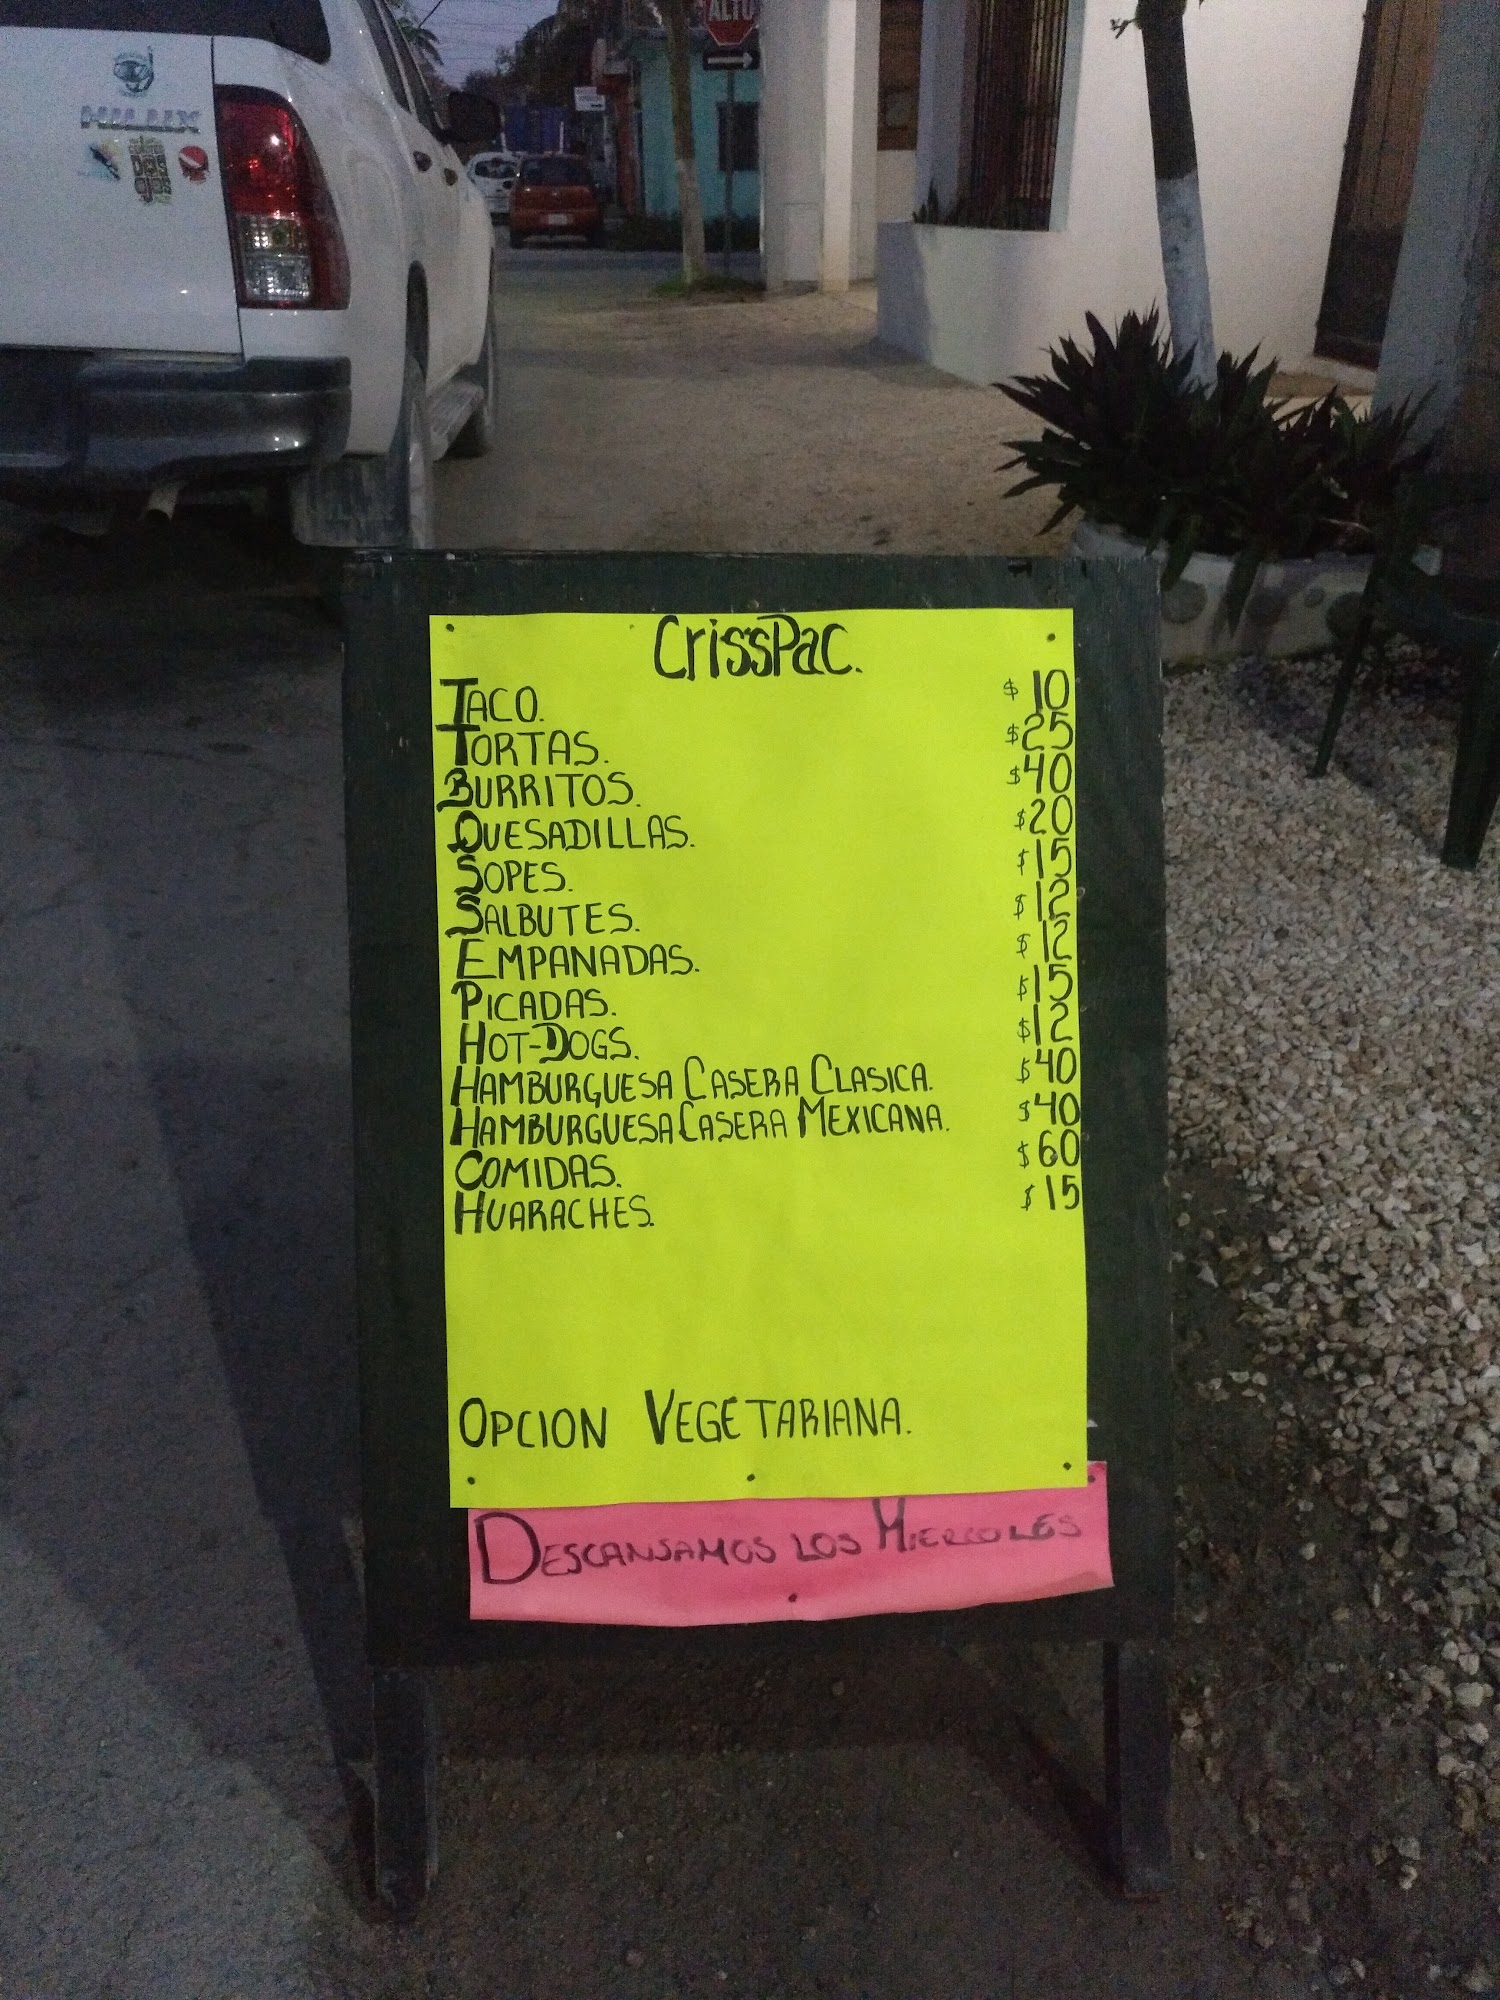 ALTO
HILUX
CrissPac.
TACO. $ 10
TORTAS. $25
BURRITOS. $40
QUESADILLAS. $20
SOPES. $15
SALBUTES. $12
EMPANADAS. $ 12
PICADAS. $15
HOT-DOGS. $12
HAMBURGUESA CASERA CLASICA. $40
HAMBURGUESA CASERA MEXICANA. $40
COMIDAS. $60
HUARACHES. $ 15
OPCION VEGETARIANA.
DESCANSAMOS LOS MIERCOLES